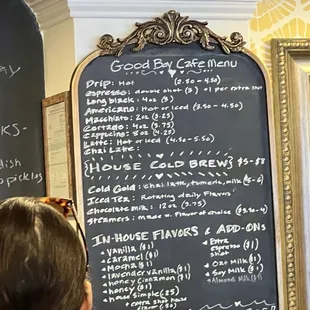 Good Boy Cafe Menu
Drip: Hot (2.50 - 4.50)
Espresso: double shot (3) +1 per extra shot
Long black: 4oz (3)
Americano: Hot or iced (3.50 - 4.50)
Macchiato: 2oz (3.25)
Cortado: 4oz (3.75)
Cappucino: 5oz (4.25)
Latte: Hot or iced (4.50 - 5.50)
Chai Latte:
{HOUSE COLD BREW} $5-$8
Cold Gold: Chai latte, tumeric, milk
Iced Tea: Rotating daily flavors
Chocolate milk: 12oz (3.75)
Steamers: made w. flavor of choice
IN-HOUSE FLAVORS & ADD-ONS
Vanilla ($1)
Caramel ($1)
Mocha ($1)
lavender vanilla ($1)
honey cinnamon ($1)
honey ($1)
house simple (.25)
+ extra shot house
flavor (.50)
Extra
espresso
shot
Oat Milk ($1)
Soy Milk ($1)
Almond Milk ($1)
ay
KS-
dish
o pickles